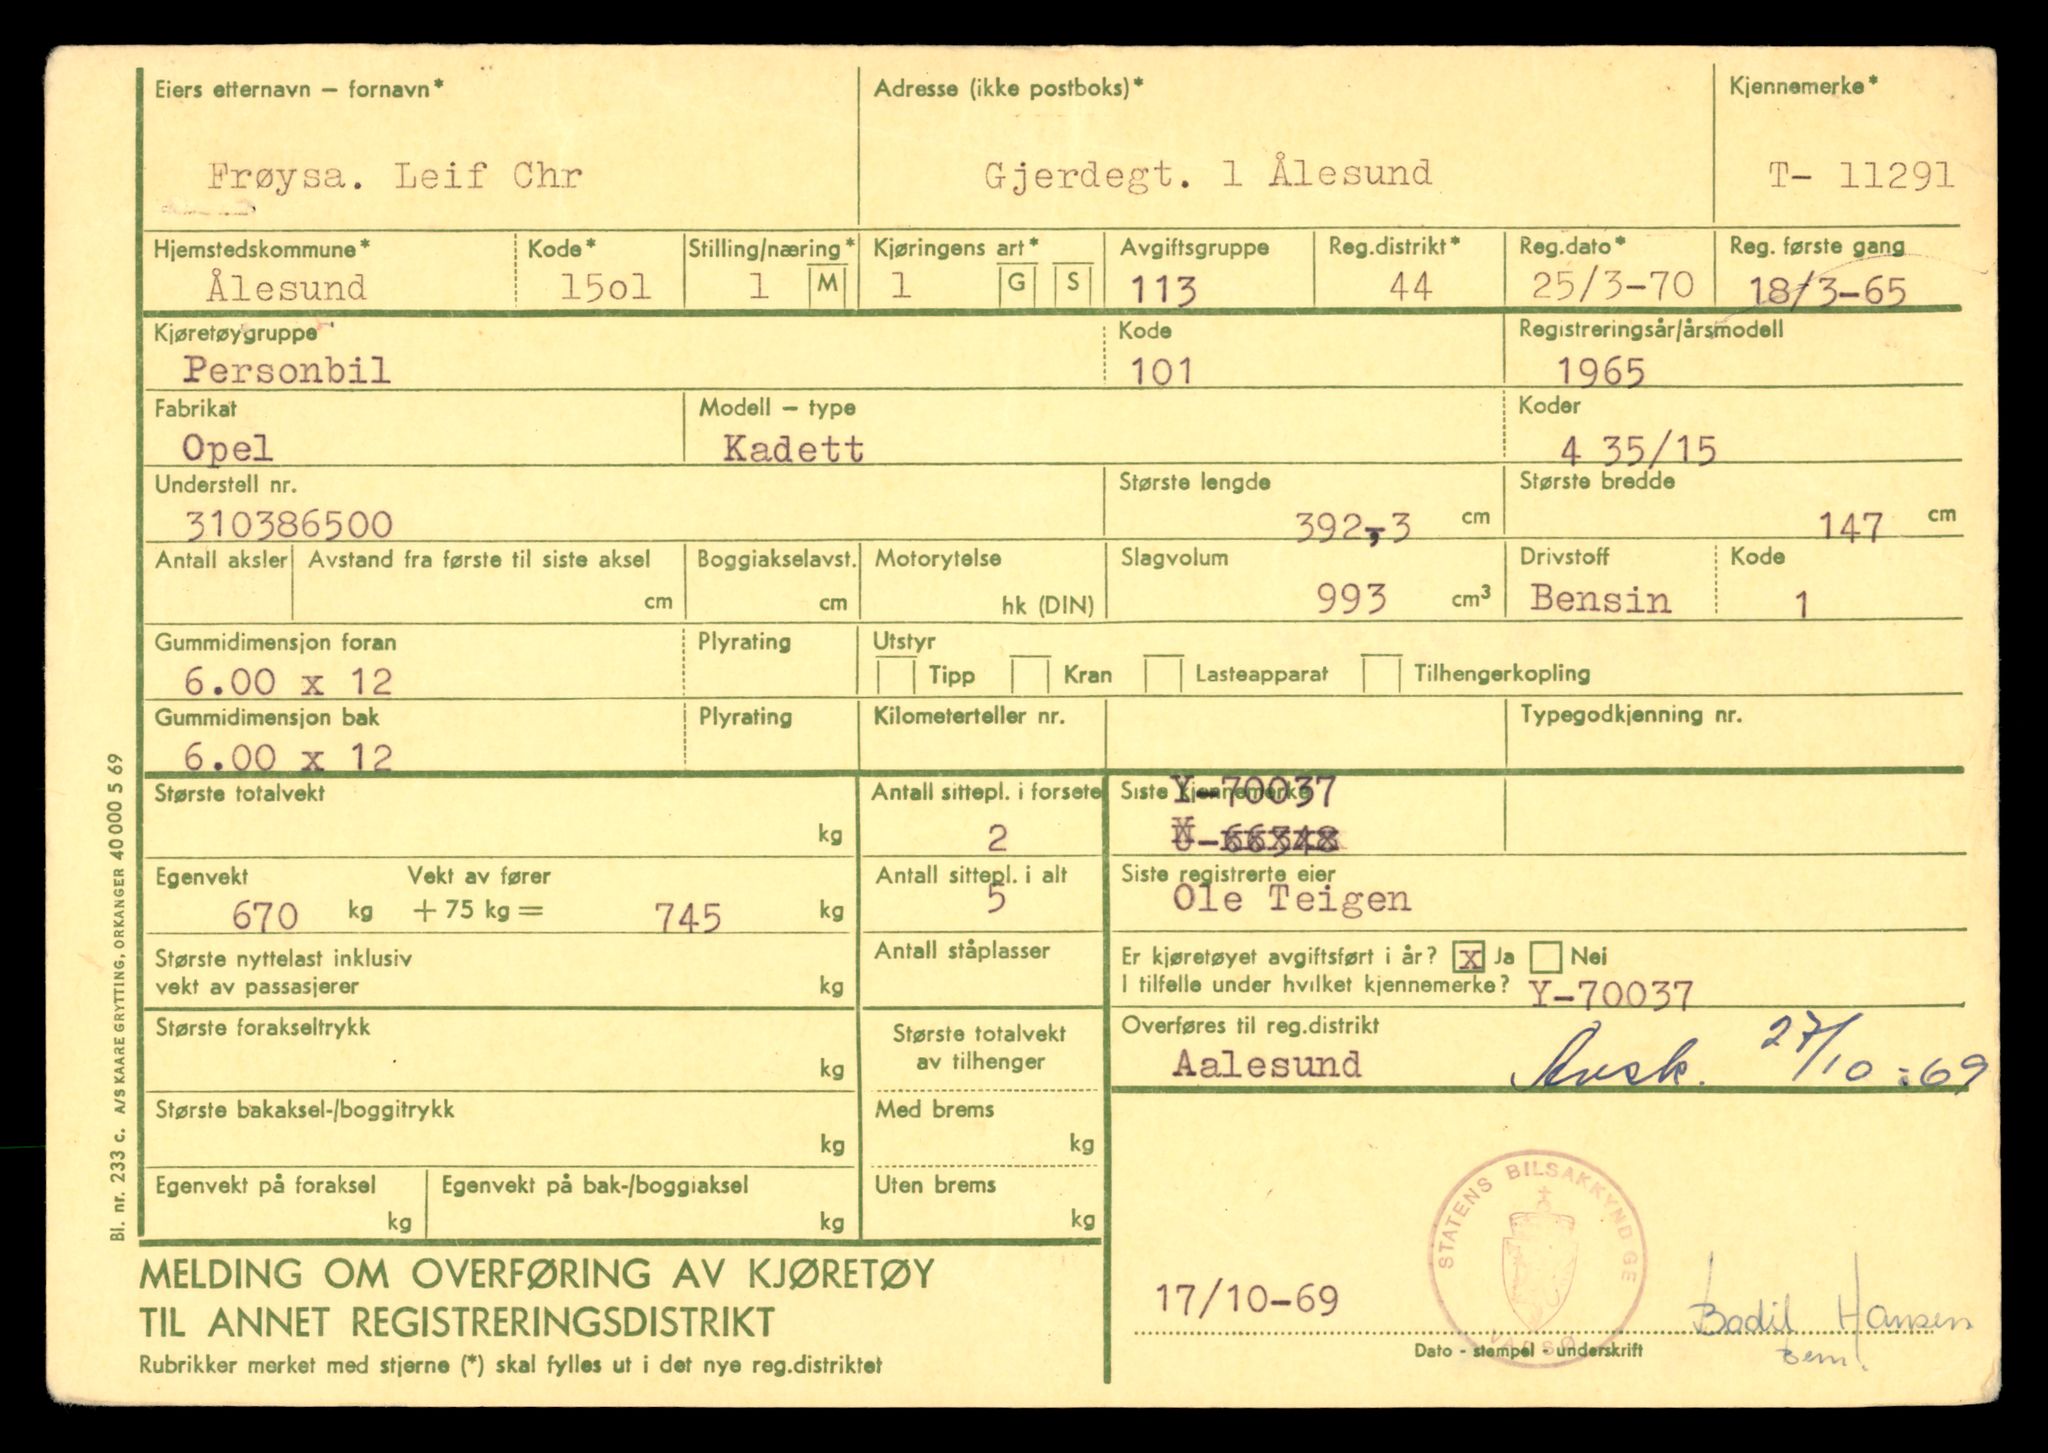 Eiers etternavn – fornavn* Adresse (ikke postboks)* Kjennemerke*
Frøysa. Leif Chr Gjerdegt. 1 Ålesund T- 11291
Hjemstedskommune* Kode* Stilling/næring* Kjøringens art* Avgiftsgruppe Reg.distrikt* Reg.dato* Reg. første gang
Ålesund 15o1 1 M 1 G S 113 44 25/3-70 18/3-65
Kjøretøygruppe Kode Registreringsår/årsmodell
Personbil 101 1965
Fabrikat Modell – type Koder
Opel Kadett 4 35/15
Understell nr. Største lengde Største bredde
310386500 392,-3 cm 147 cm
Antall aksler Avstand fra første til siste aksel Boggiakselavst. Motorytelse Slagvolum Drivstoff Kode
cm cm hk (DIN) 993 cm³ Bensin 1
Gummidimensjon foran Plyrating Utstyr
6.00 x 12 Tipp Kran Lasteapparat Tilhengerkopling
Gummidimensjon bak Plyrating Kilometerteller nr. Typegodkjenning nr.
6.00 x 12
Største totalvekt Antall sittepl. i forsete Siste kjennemerke Y-70037
kg 2 66348
Egenvekt Vekt av fører Antall sittepl. i alt Siste registrerte eier
670 kg + 75 kg = 745 kg 5 Ole Teigen
Største nyttelast inklusiv Antall ståplasser Er kjøretøyet avgiftsført i år? x Ja Nei
vekt av passasjerer kg I tilfelle under hvilket kjennemerke? Y-70037
Største forakseltrykk Største totalvekt Overføres til reg.distrikt
kg av tilhenger Aalesund Avsk. 27/10-69
Største bakaksel-/boggitrykk Med brems
kg kg
Egenvekt på foraksel Egenvekt på bak-/boggiaksel Uten brems
kg kg kg
STATENS BILSAKKYNDIGE
VADSØ
MELDING OM OVERFØRING AV KJØRETØY
TIL ANNET REGISTRERINGSDISTRIKT
17/10-69 Bodil Hansen
Bem.
Rubrikker merket med stjerne (*) skal fylles ut i det nye reg.distriktet
Dato - stempel - underskrift
Bl. nr. 233 c. A/S KAARE GRYTTING, ORKANGER 40 000 5 69